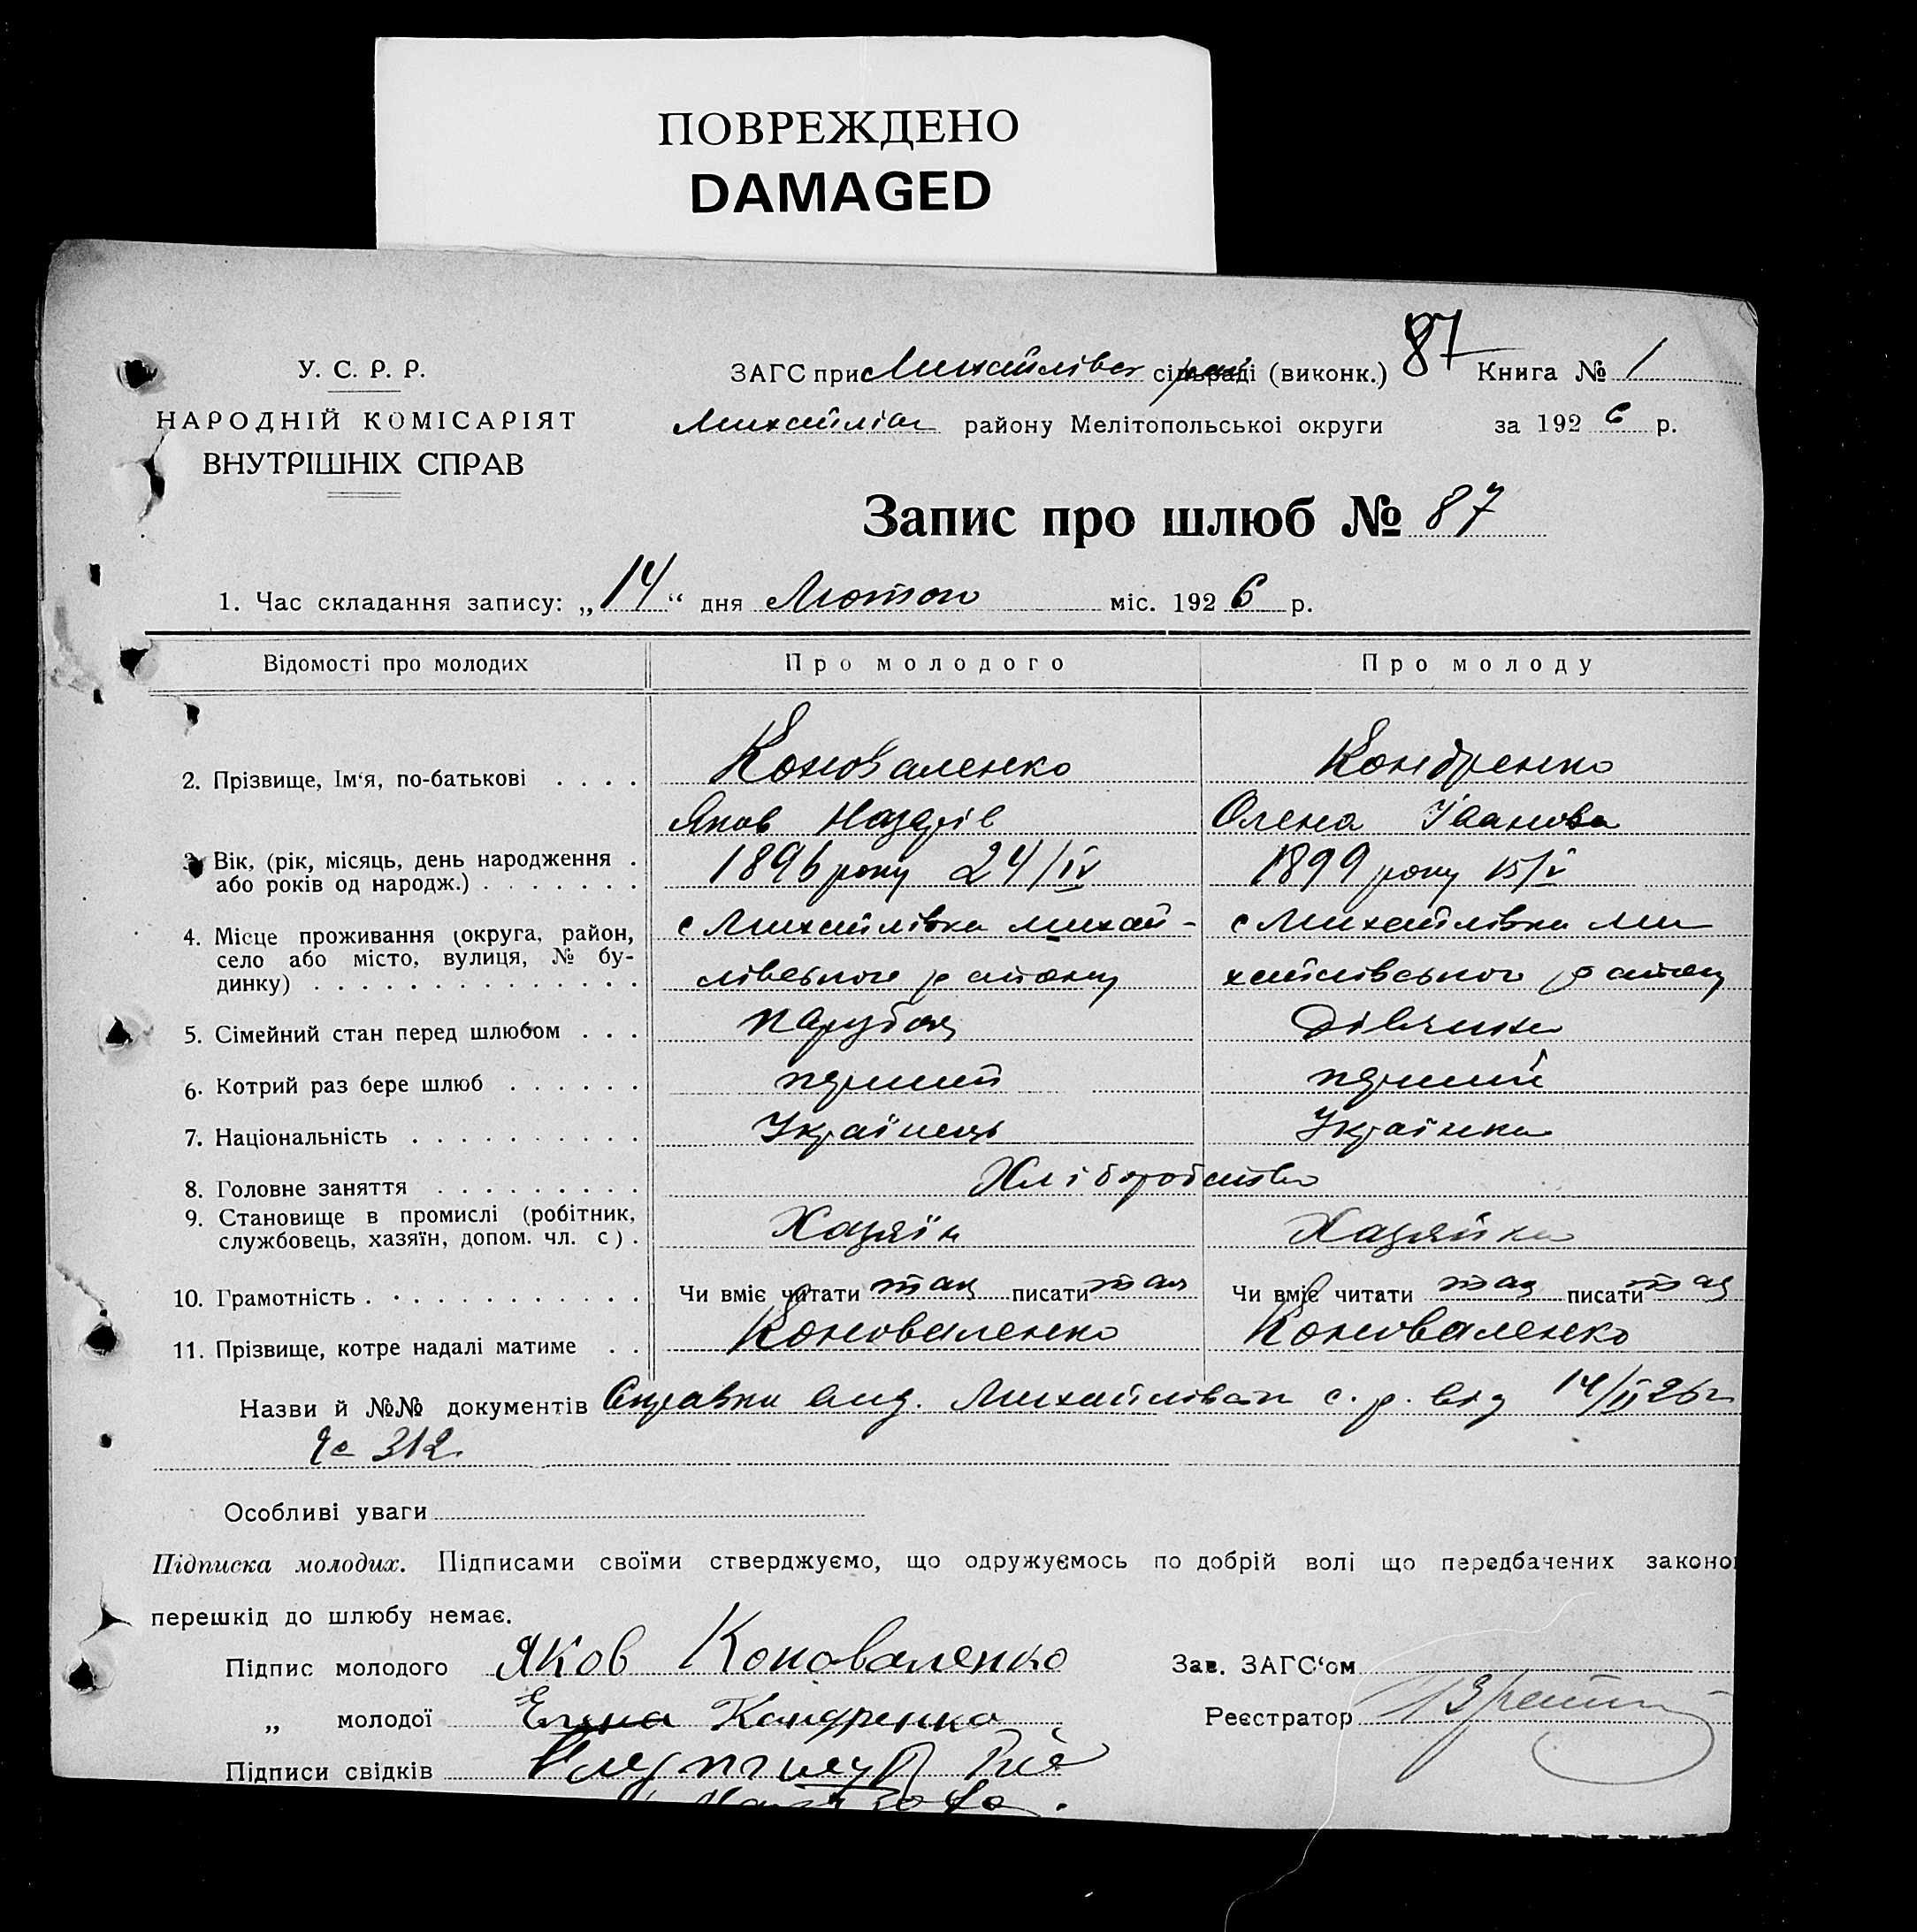 ПОВРЕЖДЕНО
DAMAGED
У. С. Р. Р.
НАРОДНІЙ КОМІСАРІЯТ
ВНУТРІШНІХ СПРАВ
ЗАГС при Михайлівск сільраді (виконк.) 87 Книга № 1
району Мелітопольської округи за 1926 р.
Запис про шлюб № 87
1. Час складання запису: „14“ дня Лютого міс. 1926 р.
Відомості про молодих Про молодого Про молоду
2. Прізвище, Ім‘я, по-батькові . . . . Коноваленко Кондренко
Яков Олена Іванова
3. Вік, (рік, місяць, день народження . 1896 року 24/IV 1899 року 15/V
або років од народж.) . . . . . . .
4. Місце проживання (округа, район, с Михайлівка михай- с Михайлівка ми
село або місто, вулиця, № бу- лівського району хайлівського району
динку) . . . . . . . . . . . . . .
5. Сімейний стан перед шлюбом . . . парубок дівчина
6. Котрий раз бере шлюб . . . . . . перший перший
7. Національність . . . . . . . . . . Українець Українка
8. Головне заняття . . . . . . . . . Хліборобство
9. Становище в промислі (робітник, Хазяїн Хазяйка
службовець, хазяїн, допом. чл. с) .
10. Грамотність . . . . . . . . . . . . Чи вміє читати так писати так Чи вміє читати так писати так
11. Прізвище, котре надалі матиме . . Коноваленко Коноваленко
Назви й №№ документів Справка вид. с. р. від 14/II 26 г
312
Особливі уваги
Підписка молодих. Підписами своїми стверджуємо, що одружуємось по добрій волі що передбачених законо
перешкід до шлюбу немає.
Підпис молодого Яков Коноваленко Зав. ЗАГС‘ом
„ молодої Елена Кондренко Реєстратор
Підписи свідків